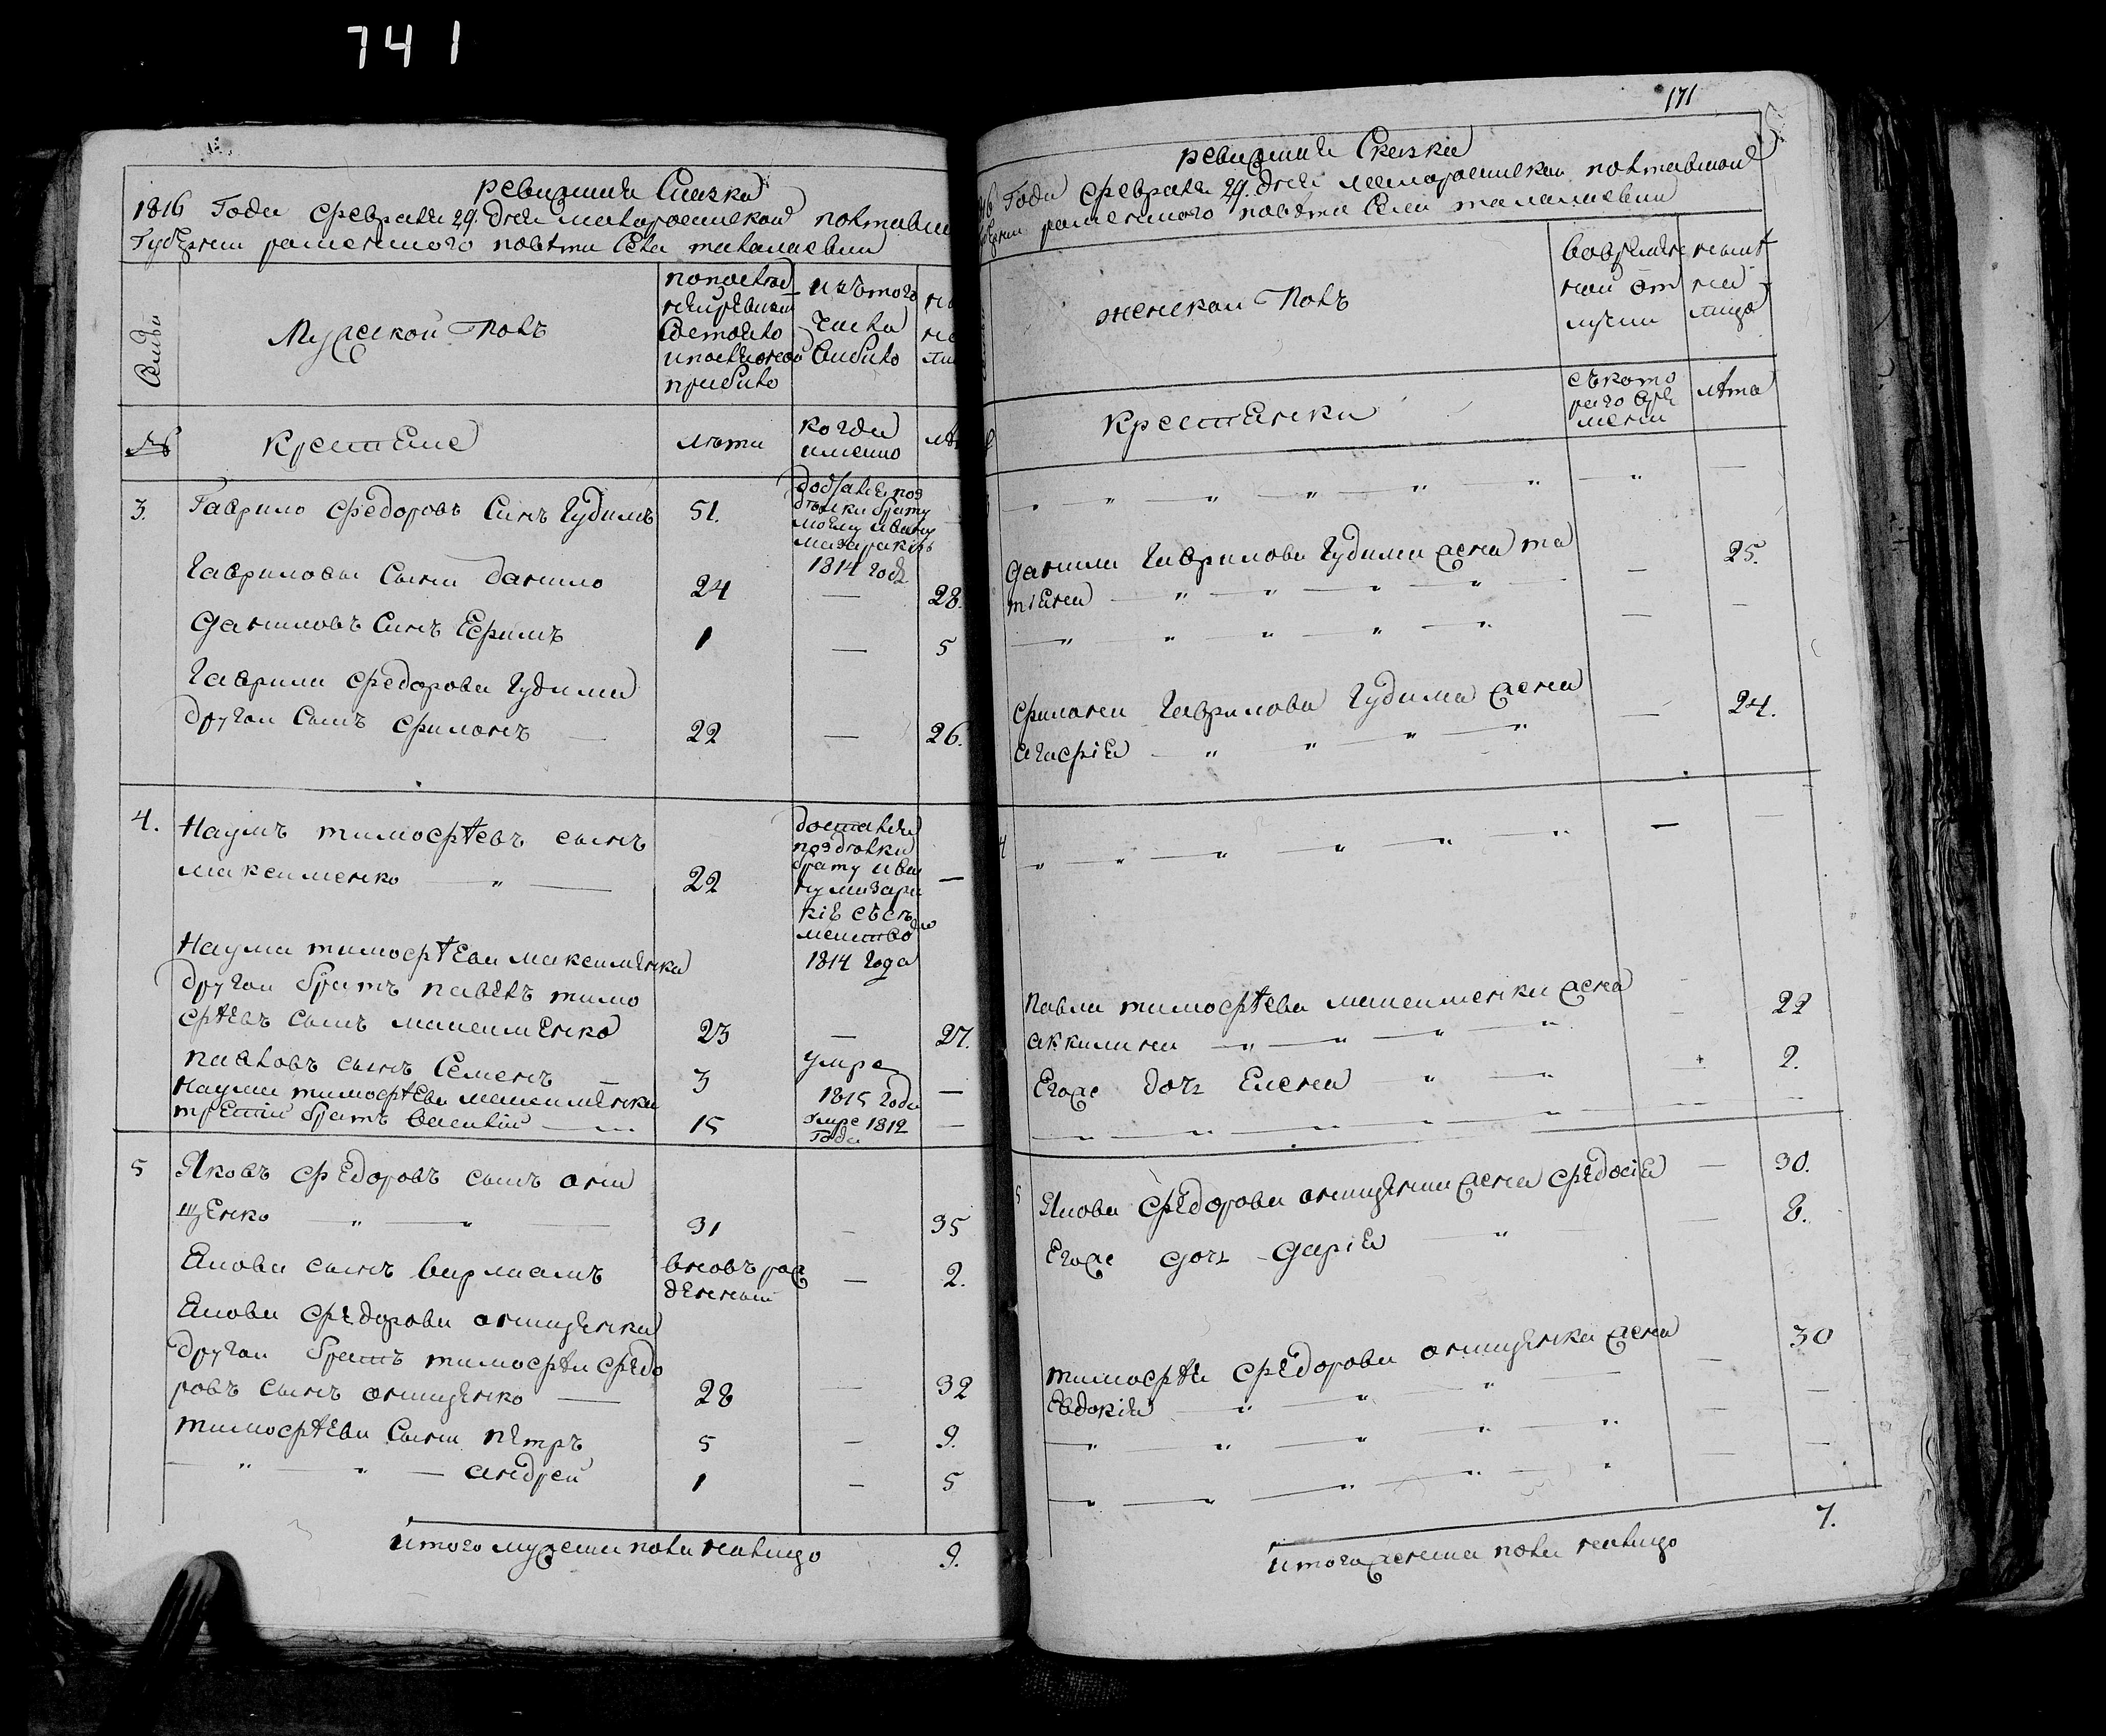 741
ревизшия Сказка
1816 Года февраля 29. дня малоросийской полтавской
Губернии роменского повѣта Села талалаевки
Семьи
Мужеской полъ
попослѣд
ней ревизии
Состояло
и послѣ оной
прибыло
изъ того
Числа
Выбыло
№
крестяне
лѣта
когда
именно
3.
Гаврило федоровъ Синъ Гудимъ
51.
моему ивану
1814 года
Гавриловы Сыни данило
24
—
28.
Даниловъ Синъ Ефимъ
1
—
5
Гаврила федорова Гудима
другой Сынъ филонъ —
22
—
26.
4.
Наумъ тимофѣевъ сынъ
максименко — " —
22
—
доставленъ
брату ива
ну мазара
кіе
1814 года
Наума тимофѣева максименка
другой братъ павелъ тимо
фѣевъ сынъ максименко
23
—
27.
павловъ сынъ Семенъ —
3
умре
1815 года
—
Наума тимофѣева максименка
третій братъ Василій —
15
умре 1812
года
—
5
Яковъ федоровъ сынъ они
щенко — " — " —
31
—
35
Якова сынъ варламъ
вновъ рож
денный
—
2.
Якова федорова онищенка
другой братъ тимофѣй федо
ровъ сынъ онищенко —
28
—
32
тимофѣева Сыни петръ
5
—
9.
— " — " — андрей
1
—
5
итого мужеска пола налицо
9.
171
ревизшия Сказка
Года февраля 29. дня малоросийской полтавской
роменского повѣта Села талалаевки
женской полъ
вовремен
ной от
лучки
налѣ
на
лицо
крестянки
съ кото
рого вре
мени
лѣта
— " — " — " — " — " — " — " —
данила Гаврилова Гудима жена та
тіана — " — " — " — " —
—
25.
— " — " — " — " — " — —
филона Гаврилова Гудима жена
агафія — " — " — " — "
—
24.
4
" — " — " — " — " — " — —
павла тимофѣева максименка жена
акилина — " — " — " — "
22
Егоже дочь Елена — " —
2.
— " — " — " — " — " —
5
Якова федорова онищенка жена федосія
—
30.
Егоже дочь Дарія — " —
—
8.
тимофѣя федорова онищенка жена
Евдокія — " — " — " —
—
30
— " — " — " — " — " — —
— " — " — " — " — " — —
итого женска пола налицо
7.